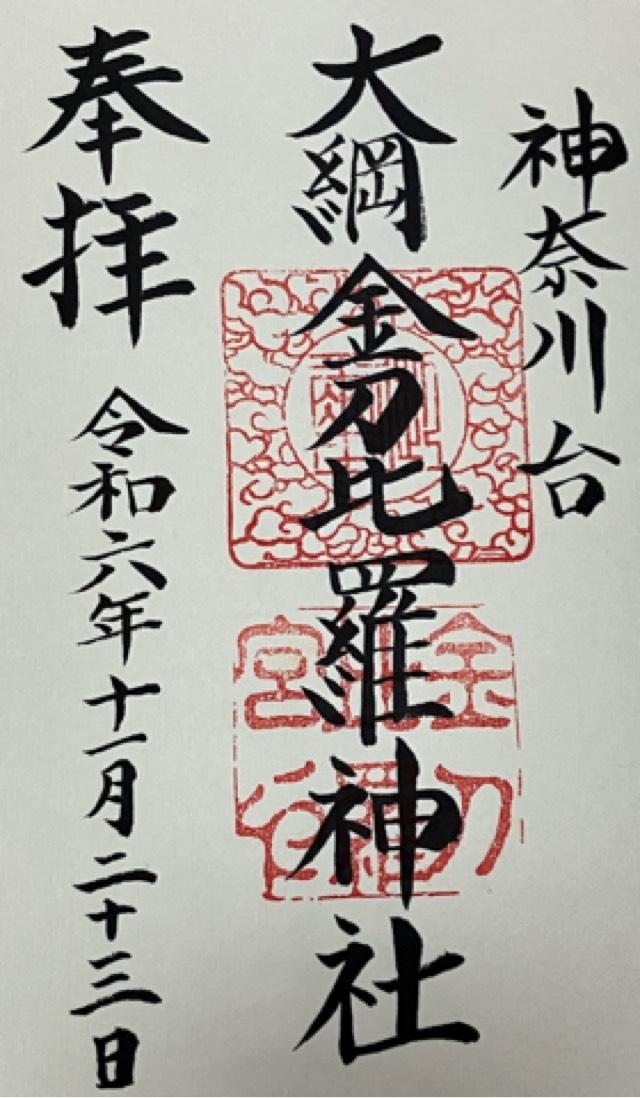 神奈川台
大綱金刀比羅神社
奉拝
令和六年十一月二十三日